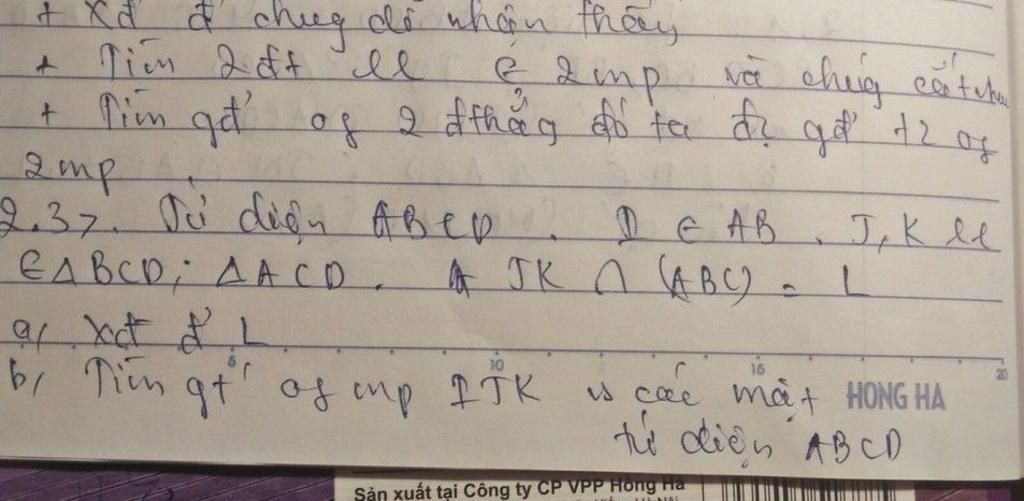 + Xđ đ' chug dễ nhận thấy
+ Tìm 2đt ll ∈ 2mp và chúg cắt nhau
+ Tìm gđ' of 2 đthẳg đó ta đc gđ' t2 of
2mp
2.3>. Tứ diện ABCD. I ∈ AB. J, K ll
∈ ΔBCD; ΔACD. JK ∩ (ABC) = L
a, Xđ đ' L
5 10 15 20
b, Tìm gt' of mp IJK vs các mặt HONG HA
tứ diện ABCD
Sản xuất tại Công ty CP VPP Hồng Hà